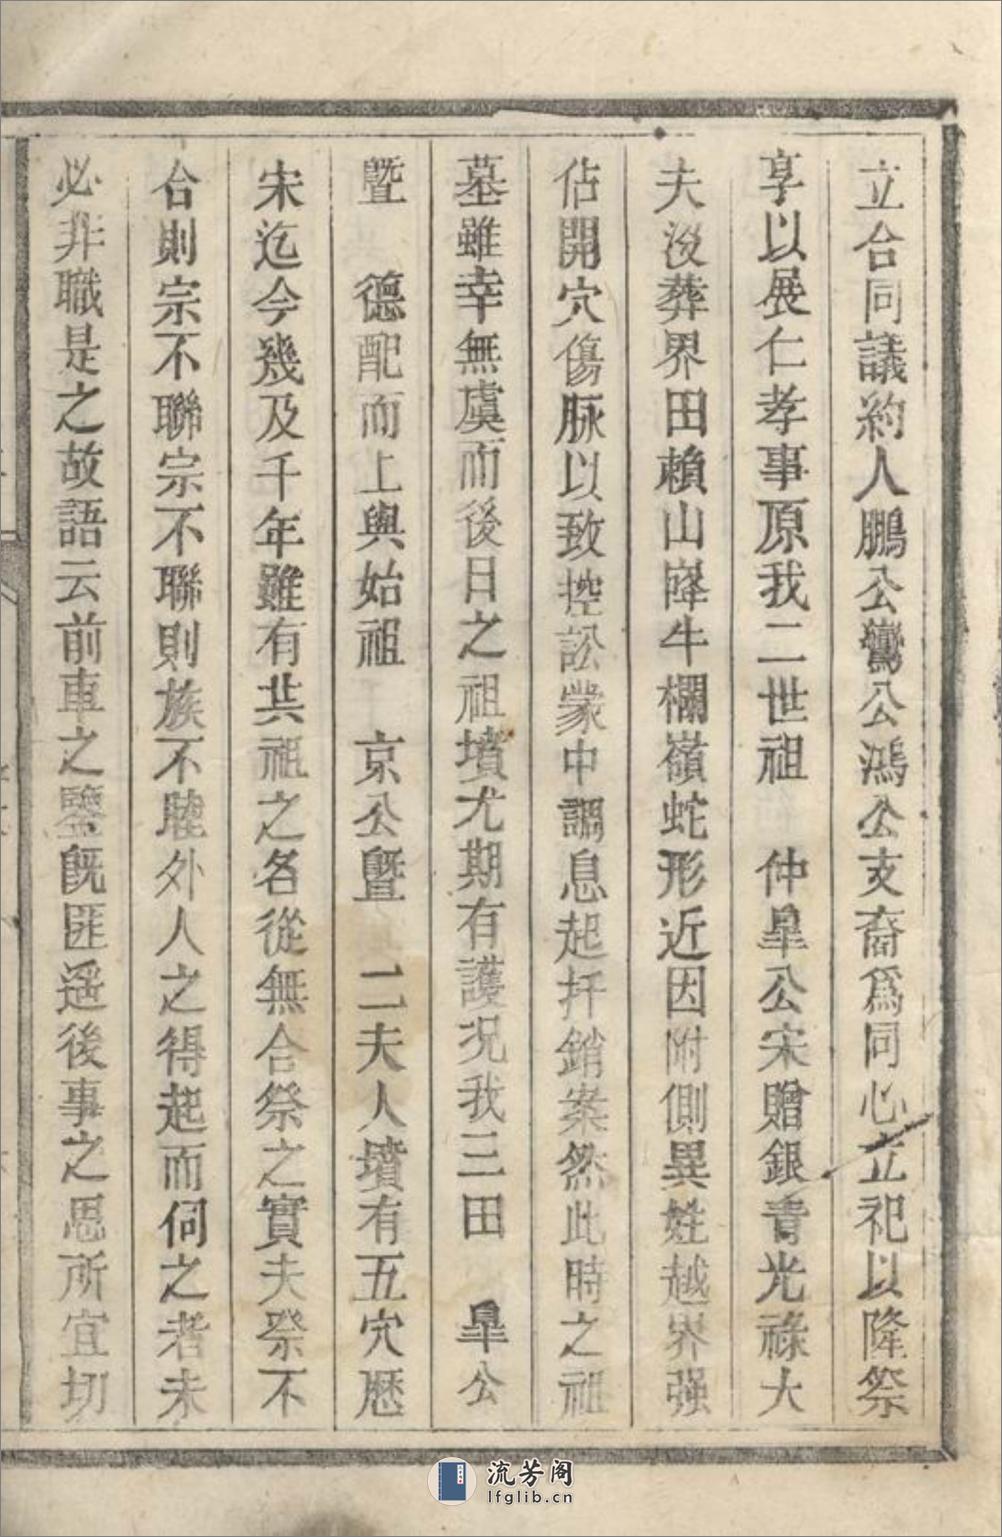 立合同議約人鵬公鸞公鴻公支裔爲同心立祀以隆祭
享以展仁孝事原我二世祖　仲皐公宋贈銀青光祿大
夫沒葬界田賴山降牛欄嶺蛇形近因附側異姓越界强
佔開穴傷脉以致控訟蒙中調息起扦銷案然此時之祖
墓雖幸無虞而後日之祖墳尤期有護况我三田　皐公
暨　德配而上與始祖　京公暨　二夫人墳有五穴歷
宋迄今幾及千年雖有共祖之名從無合祭之實夫祭不
合則宗不聯宗不聯則族不睦外人之得起而伺之者未
必非職是之故語云前車之鑒既匪遥後事之思所宜切
流芳阁
lfglib.cn